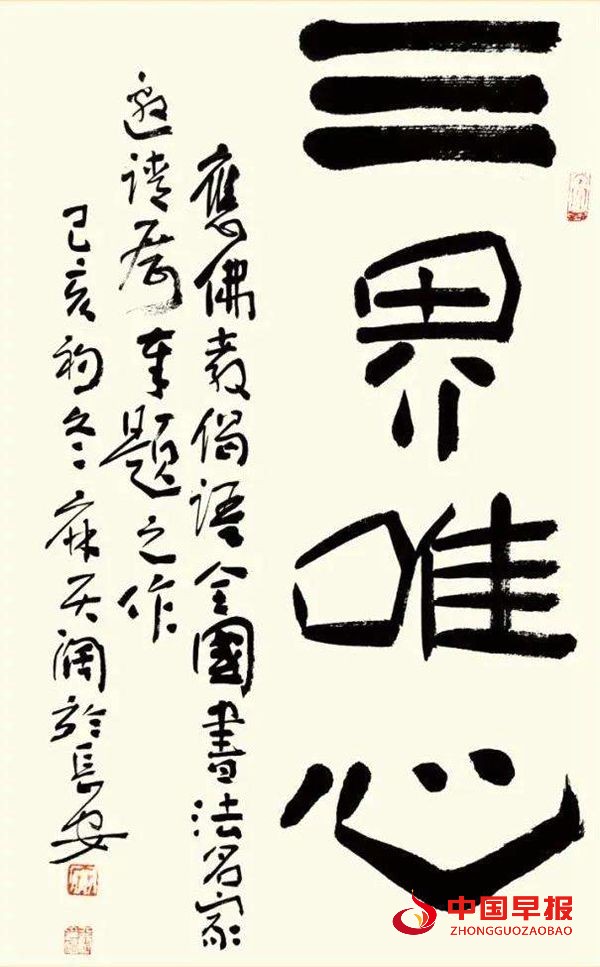 三界唯心
應佛教偈语全國書法名家
邀请展奉题之作
己亥初冬麻天阔於長安
中国早报
ZHONGGUOZAOBAO